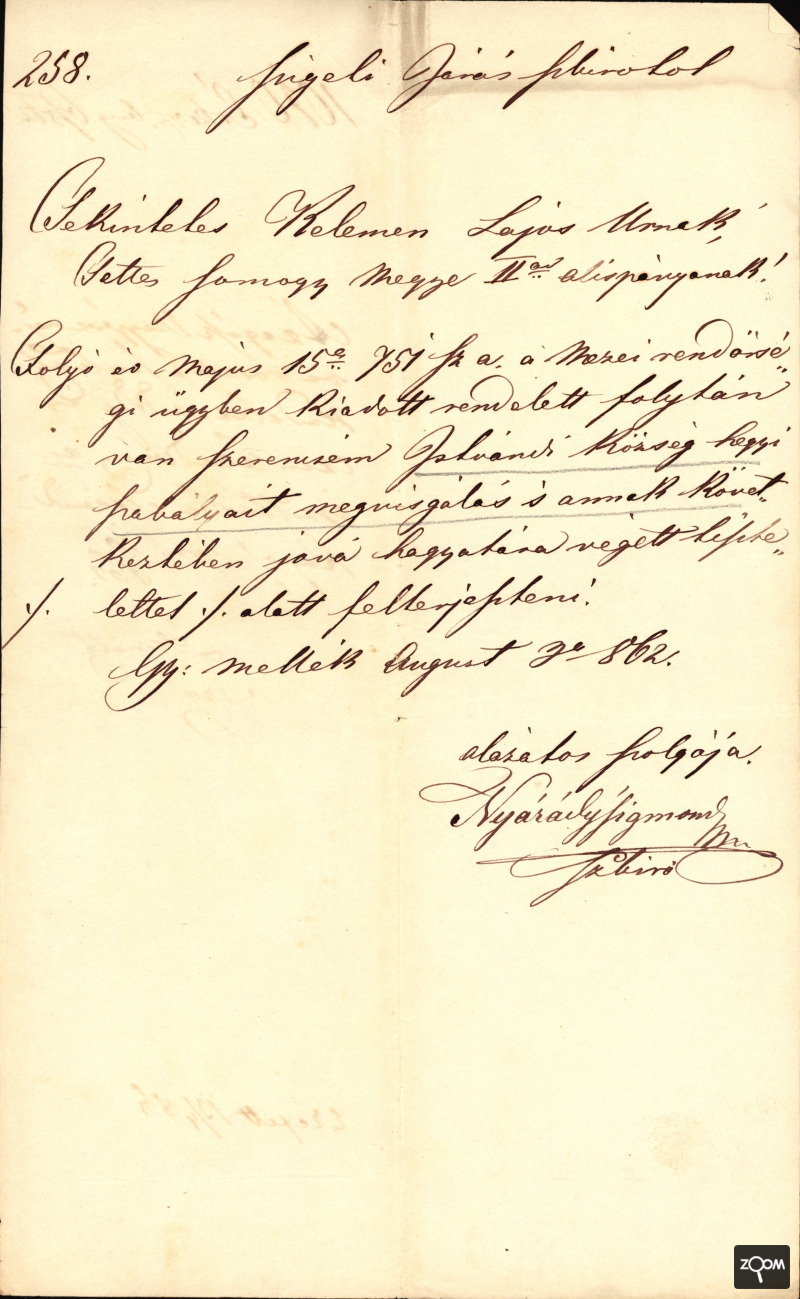 258. Szigeti Járás szbirotol
Tekintetes Kelemen Lajos Urnak,
Tettes Somogy Megye II od alispányának!
Folyó év Május 15 én 751 sz a. a Mezei rendőrsé„
gi ügyben kiadott rendelett folytán
van szerencsém Istvándi község hegyi
szabályait megvisgálás és annak követ„
keztében jová hagyatára végett tiszte„
lettel ./. alatt felterjeszteni!
./.
Gy: Mellék August 3 a 862.
alázatos szolgája.
Nyárády Sigmond
szbiró
ZOOM